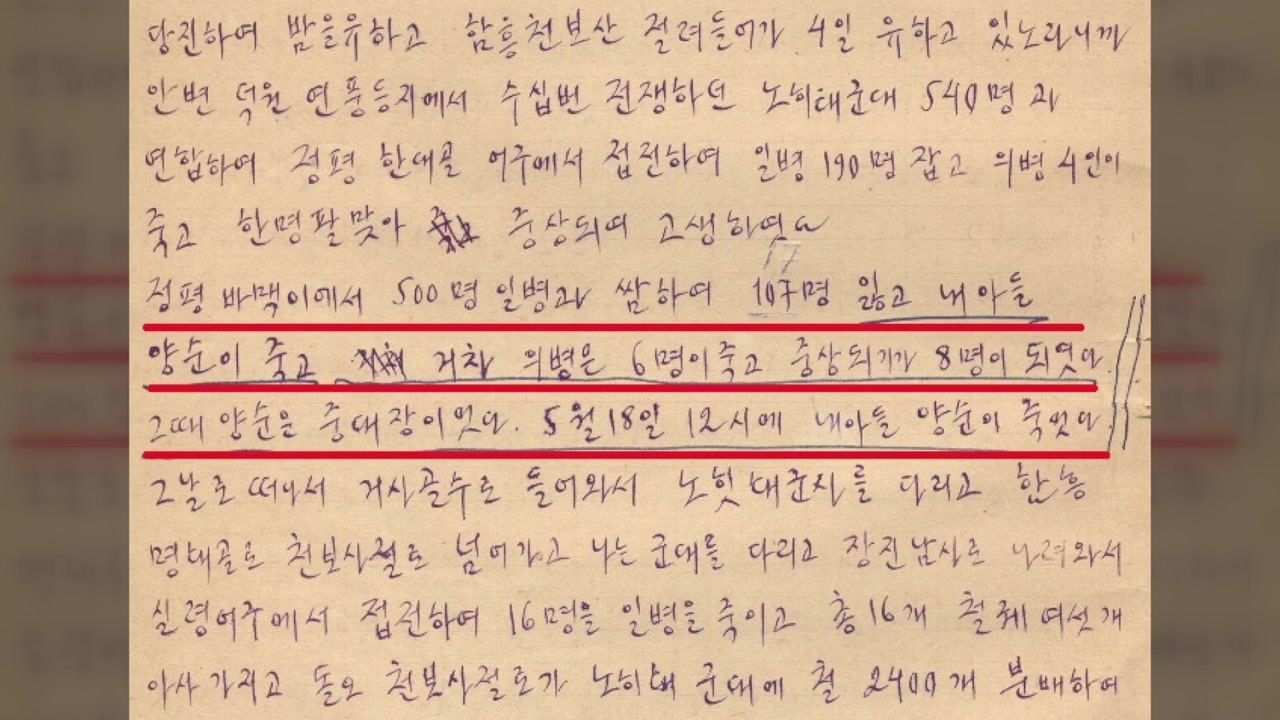 당진하여 밤을유하고 함흥천보산 절려들어가 4일 유하고 있노라니까
안변 덕원 연풍등지에서 수십번 전쟁하던 노히태군대 540명과
연합하여 정평 한대골 어구에서 접전하여 일병 190명 잡고 의병 4인이
죽고 한명팔맞아 중상되여 고생하엿다
17
정평 바맥이에서 500명 일병과 쌈하여 107명 잃고 내아들
양순이 죽고 거차 의병은 6명이죽고 중상되기가 8명이 되엿다
그때 양순은 중대장이엇다. 5월18일 12시에 내아들 양순이 죽엇다
그날로 떠나서 거사골수로 들어와서 노힛태군사를 다리고 함흥
명태골로 천보사절로 넘어가고 나는 군대를 다리고 장진남사로 나려와서
실령어구에서 접전하여 16명을 일병을 죽이고 총16개 철궤여섯개
아사가지고 돌오 천보사절로가 노히태 군대에 철 2400개 분배하여